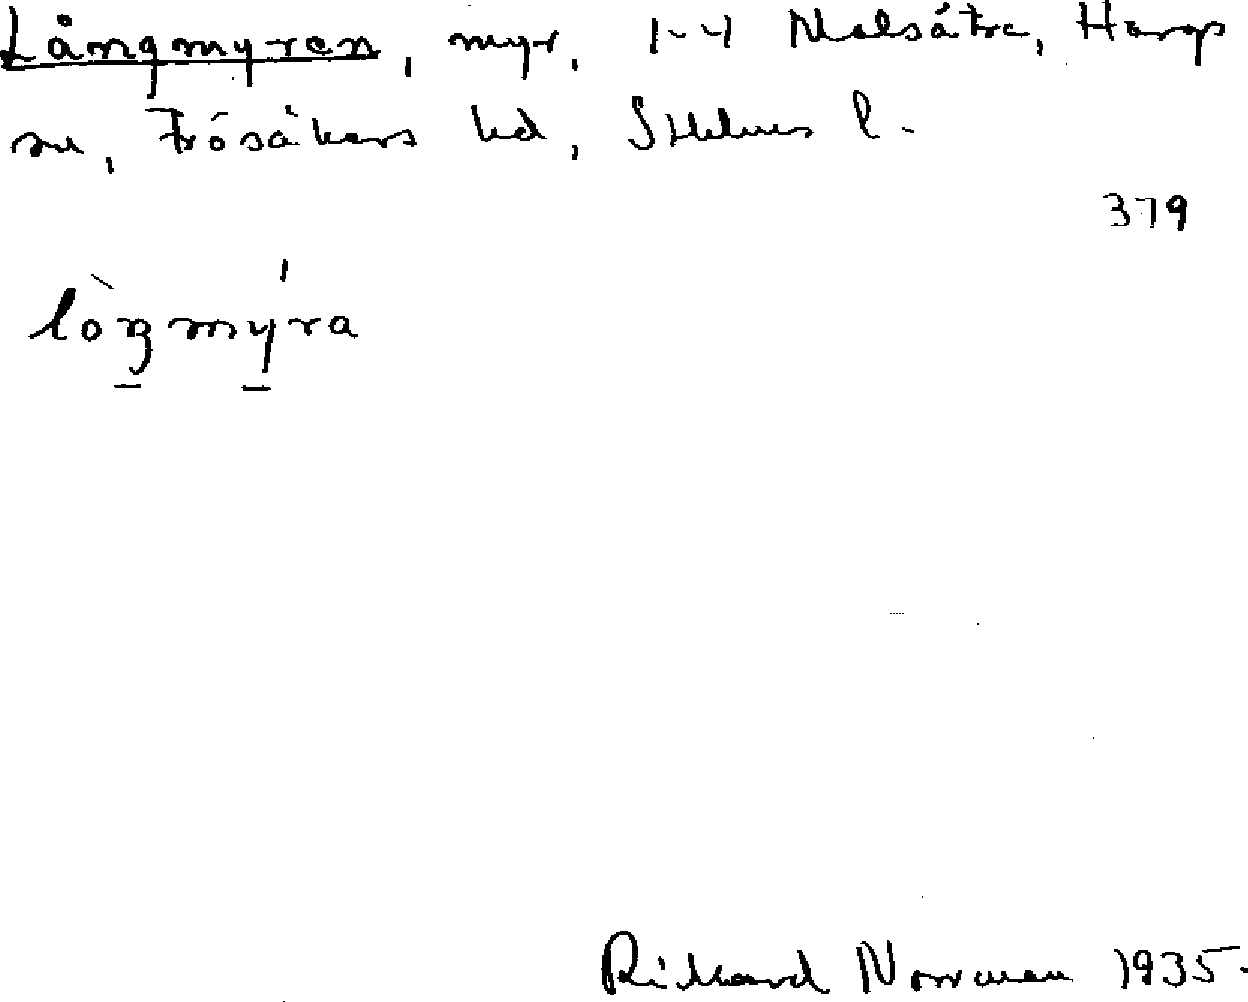 Långmyren, myr, 1-4 Malsätra, Hargs
sn, Frösåkers hd, Sthlms l.
379
lòŋmýra
Rickard Norrman 1935.